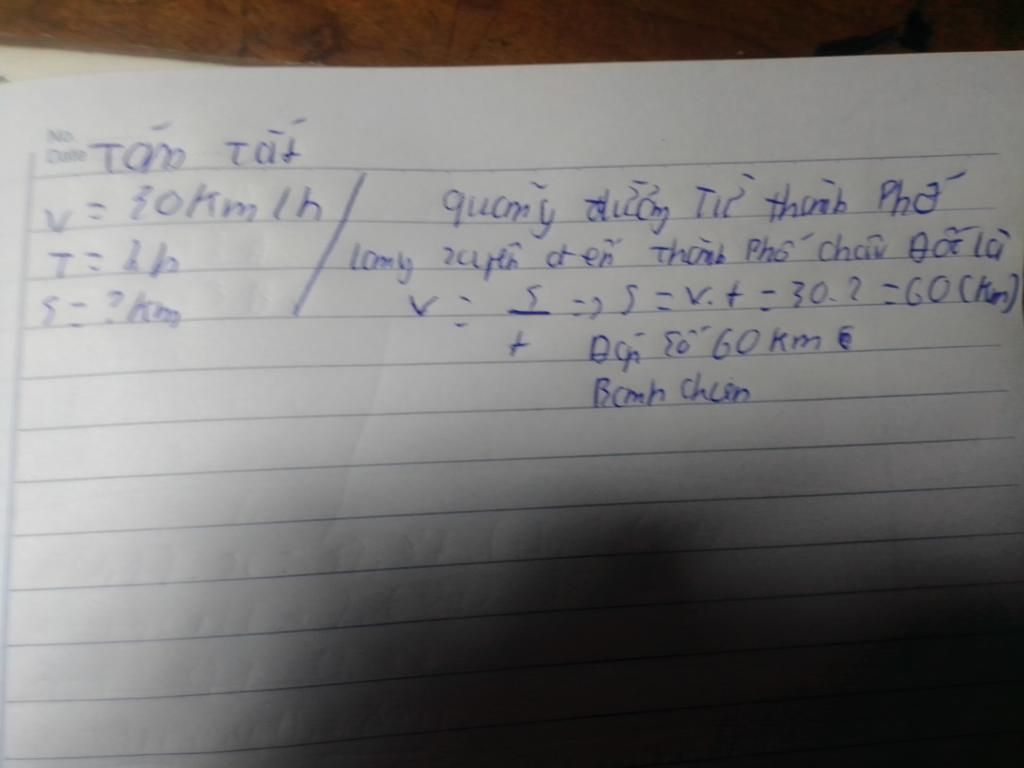 No.
Date Tóm Tắt
v = 30 Km/h / quãng đường Từ thành Phố
T = 2h / Long xuyên đến thành Phố Châu Đốc là
S = ? Km v = S/t => S = v.t = 30.2 = 60 (Km)
Đáp số 60 Km